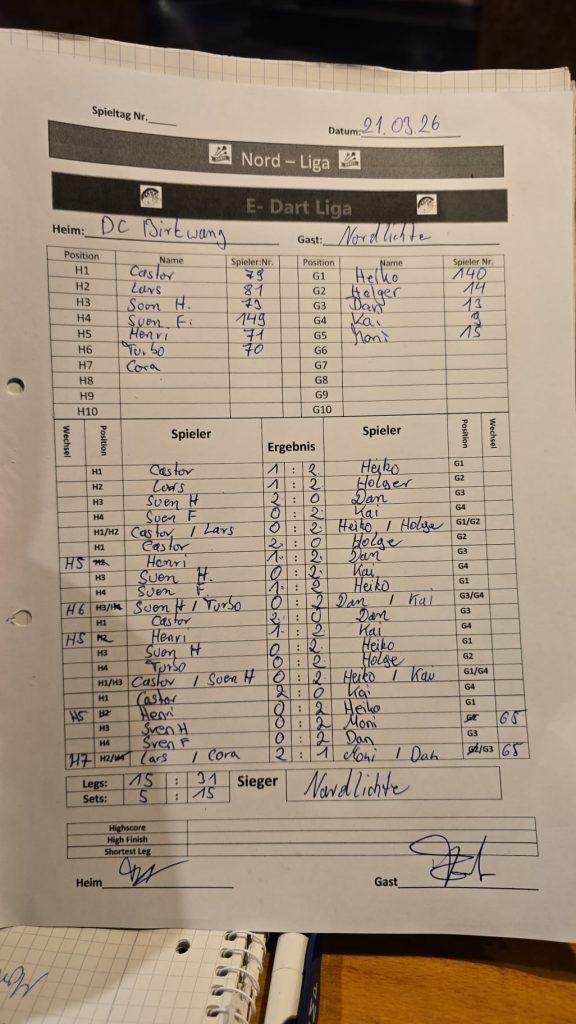 Spieltag Nr.
Datum: 21.03.26
Nord – Liga
E- Dart Liga
Heim: DC Birkwang Gast: Nordlichte
Position Name Spieler:Nr. Position Name Spieler Nr.
H1 Castor 79 G1 Heiko 140
H2 Lars 81 G2 Holger 14
H3 Sven H. 73 G3 Dan 13
H4 Sven F. 149 G4 Kai 9
H5 Henri 71 G5 Moni 15
H6 Turbo 70 G6
H7 Cora G7
H8 G8
H9 G9
H10 G10
Wechsel Position Spieler Ergebnis Spieler Position Wechsel
H1 Castor 1 : 2 Heiko G1
H2 Lars 1 : 2 Holger G2
H3 Sven H 2 : 0 Dan G3
H4 Sven F 0 : 2 Kai G4
H1/H2 Castor / Lars 0 : 2 Heiko / Holge G1/G2
H1 Castor 2 : 0 Holge G2
H5 H2 Henri 1 : 2 Dan G3
H3 Sven H. 0 : 2 Kai G4
H4 Sven F. 1 : 2 Heiko G1
H6 H3/H4 Sven H / Turbo 0 : 2 Dan / Kai G3/G4
H1 Castor 2 : 0 Dan G3
H5 H2 Henri 1 : 2 Kai G4
H3 Sven H 0 : 2 Heiko G1
H4 Turbo 0 : 2 Holge G2
H1/H3 Castor / Sven H 0 : 2 Heiko / Kai G1/G4
H1 Castor 2 : 0 Kai G4
H5 H2 Henri 0 : 2 Heiko G1
H3 Sven H 0 : 2 Moni G2 G5
H4 Sven F 0 : 2 Dan G3
H7 H2/H4 Lars / Cora 2 : 1 Moni / Dan G2/G3 G5
Legs: 15 : 31 Sieger Nordlichte
Sets: 5 : 15
Highscore
High Finish
Shortest Leg
Heim Gast